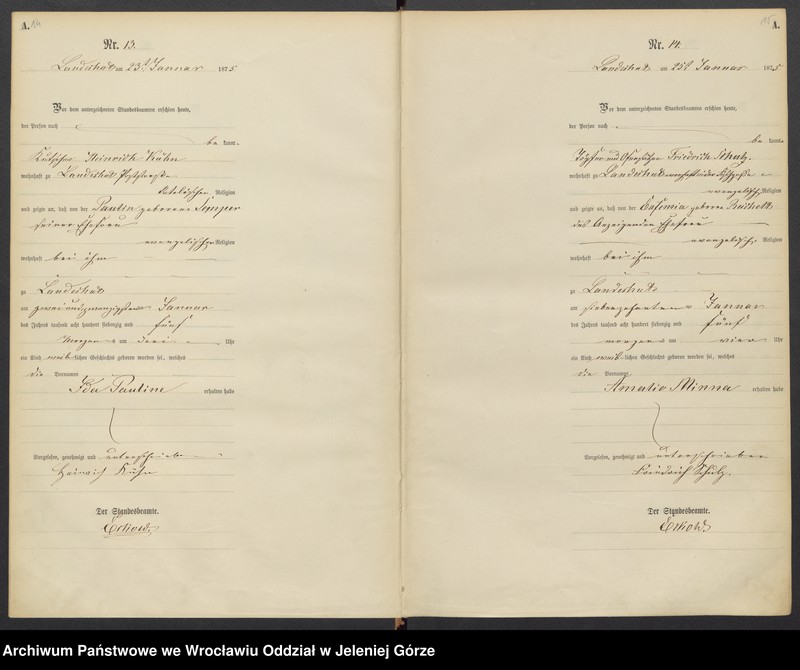 A. 14
Nr. 13.
Landeshut am 23t Januar 1875
Vor dem unterzeichneten Standesbeamten erschien heute,
der Person nach
be kannt
Kutscher Heinrich Kühn
wohnhaft zu Landeshut Poststraße
katolischer Religion
und zeigte an, daß von der Pauline geborene
seiner Ehefrau
evangelischer Religion
wohnhaft bei ihm
zu Landeshut
am zwei und zwanzigsten Januar
des Jahres tausend acht hundert siebenzig und fünf
Morgens um drei Uhr
ein Kind weib lichen Geschlechts geboren worden sei, welches
die Vornamen
Ida Pauline erhalten habe
Vorgelesen, genehmigt und unterschrieben
Heinrich Kühn
Der Standesbeamte.
15 A.
Nr. 14.
Landeshut am 25t Januar 1875
Vor dem unterzeichneten Standesbeamten erschien heute,
der Person nach
be kannt
Töpfer und Friedrich Schulz
wohnhaft zu Landeshut
evangelischer Religion
und zeigte an, daß von der geborene
des Anzeigenden Ehefrau
evangelischer Religion
wohnhaft bei ihm
zu Landeshut
am siebenzehnten Januar
des Jahres tausend acht hundert siebenzig und fünf
morgens um vier Uhr
ein Kind weib lichen Geschlechts geboren worden sei, welches
die Vornamen
Amalie Minna erhalten habe
Vorgelesen, genehmigt und unterschrieben
Friedrich Schulz.
Der Standesbeamte.
Archiwum Państwowe we Wrocławiu Oddział w Jeleniej Górze